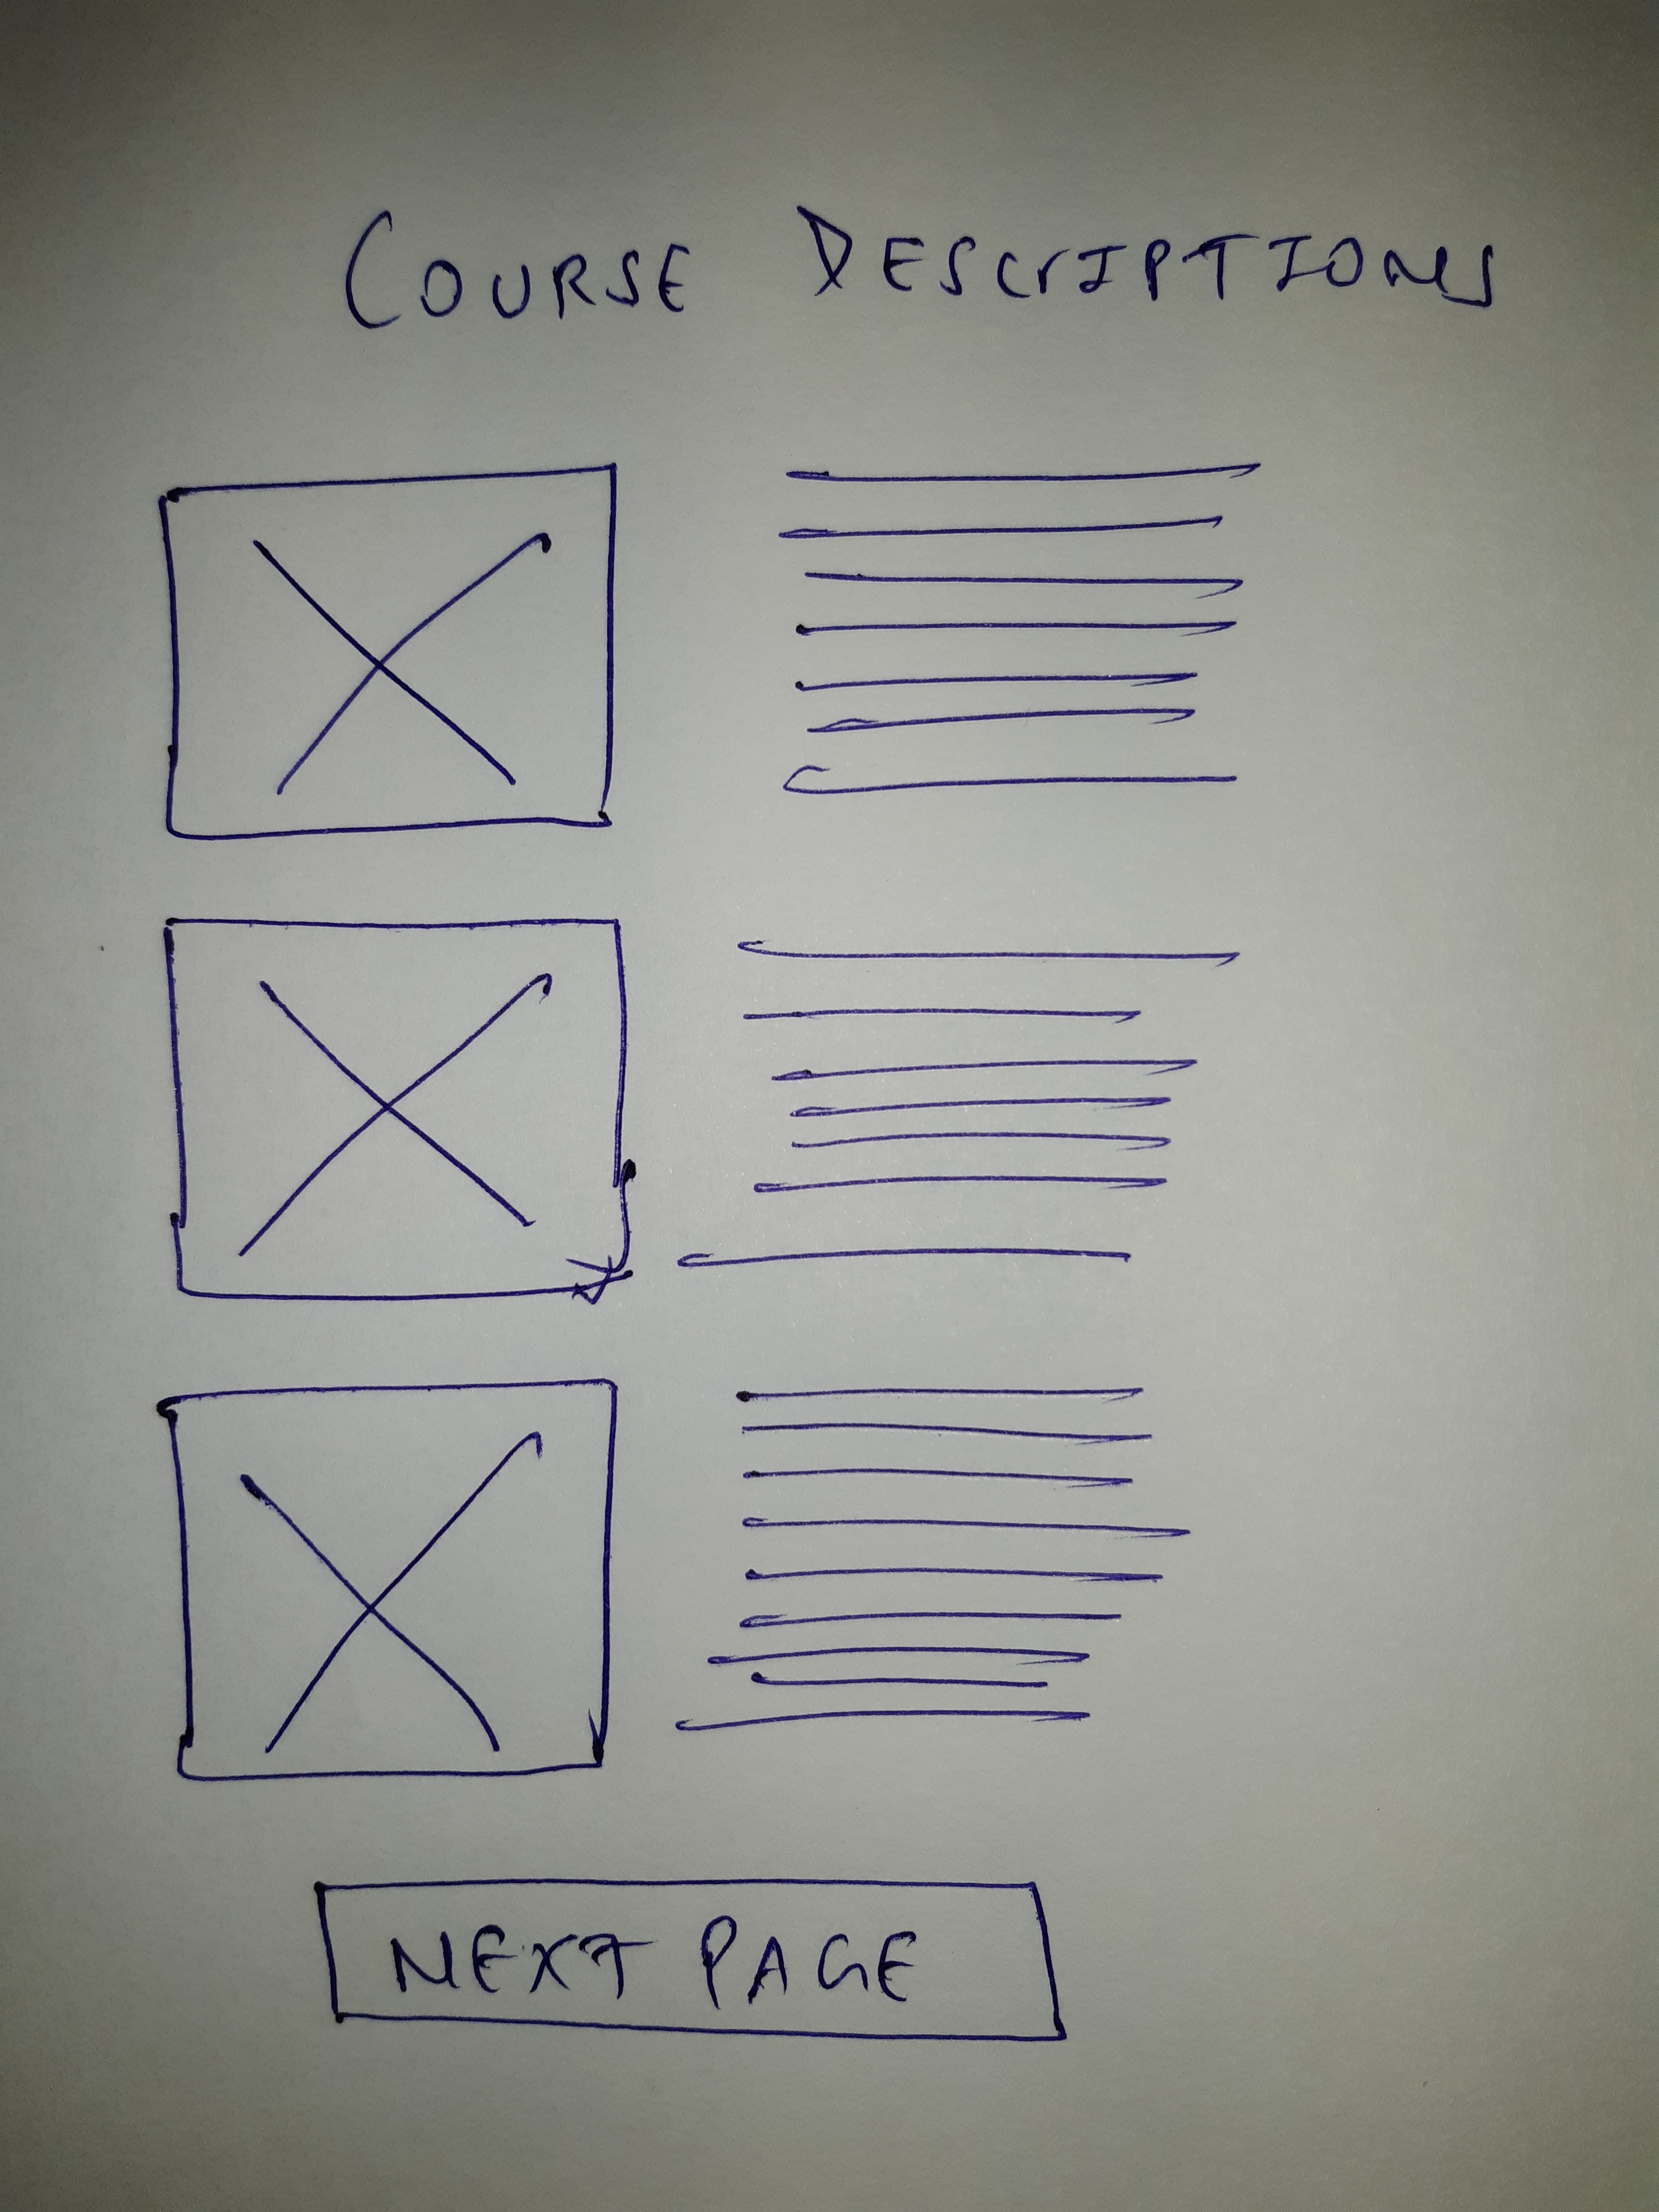 COURSE DESCrIPTIONS
NEXT PAGE